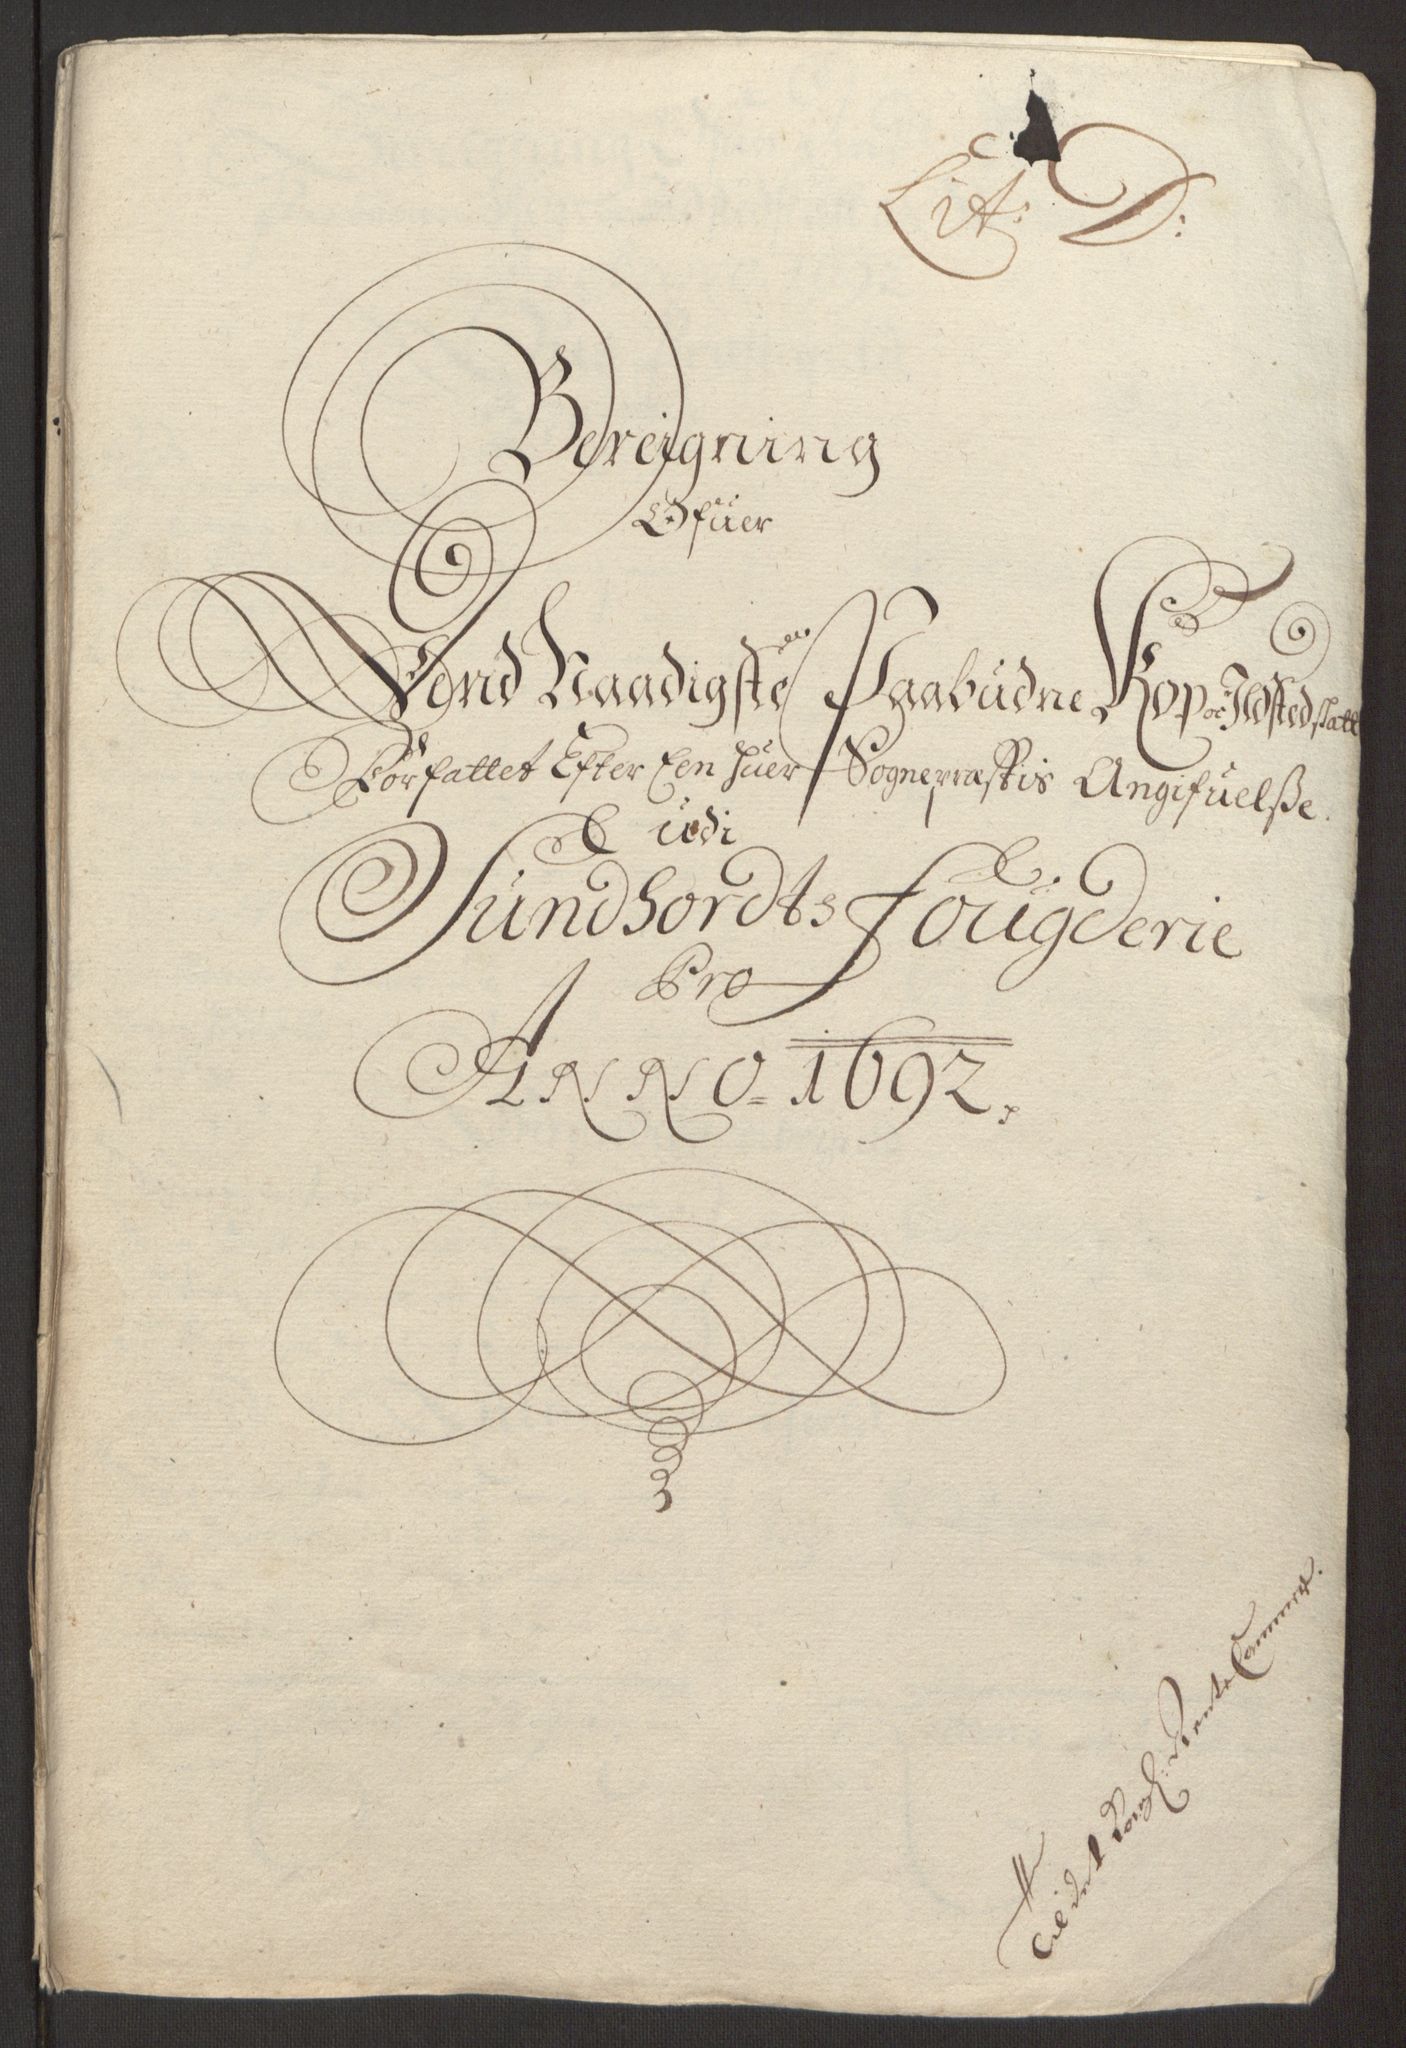 Lit: D:
Bereigning
Ofuer
Dend Naadigste Paabudne Kop oc Ildsted skatt
Forfattet Efter Een huer Sognepræstis Angifuelsse.
udi
Sundhordts Fougderie
Pro
ANNO = 1692.
Til det Kongl: Rente Cammer.